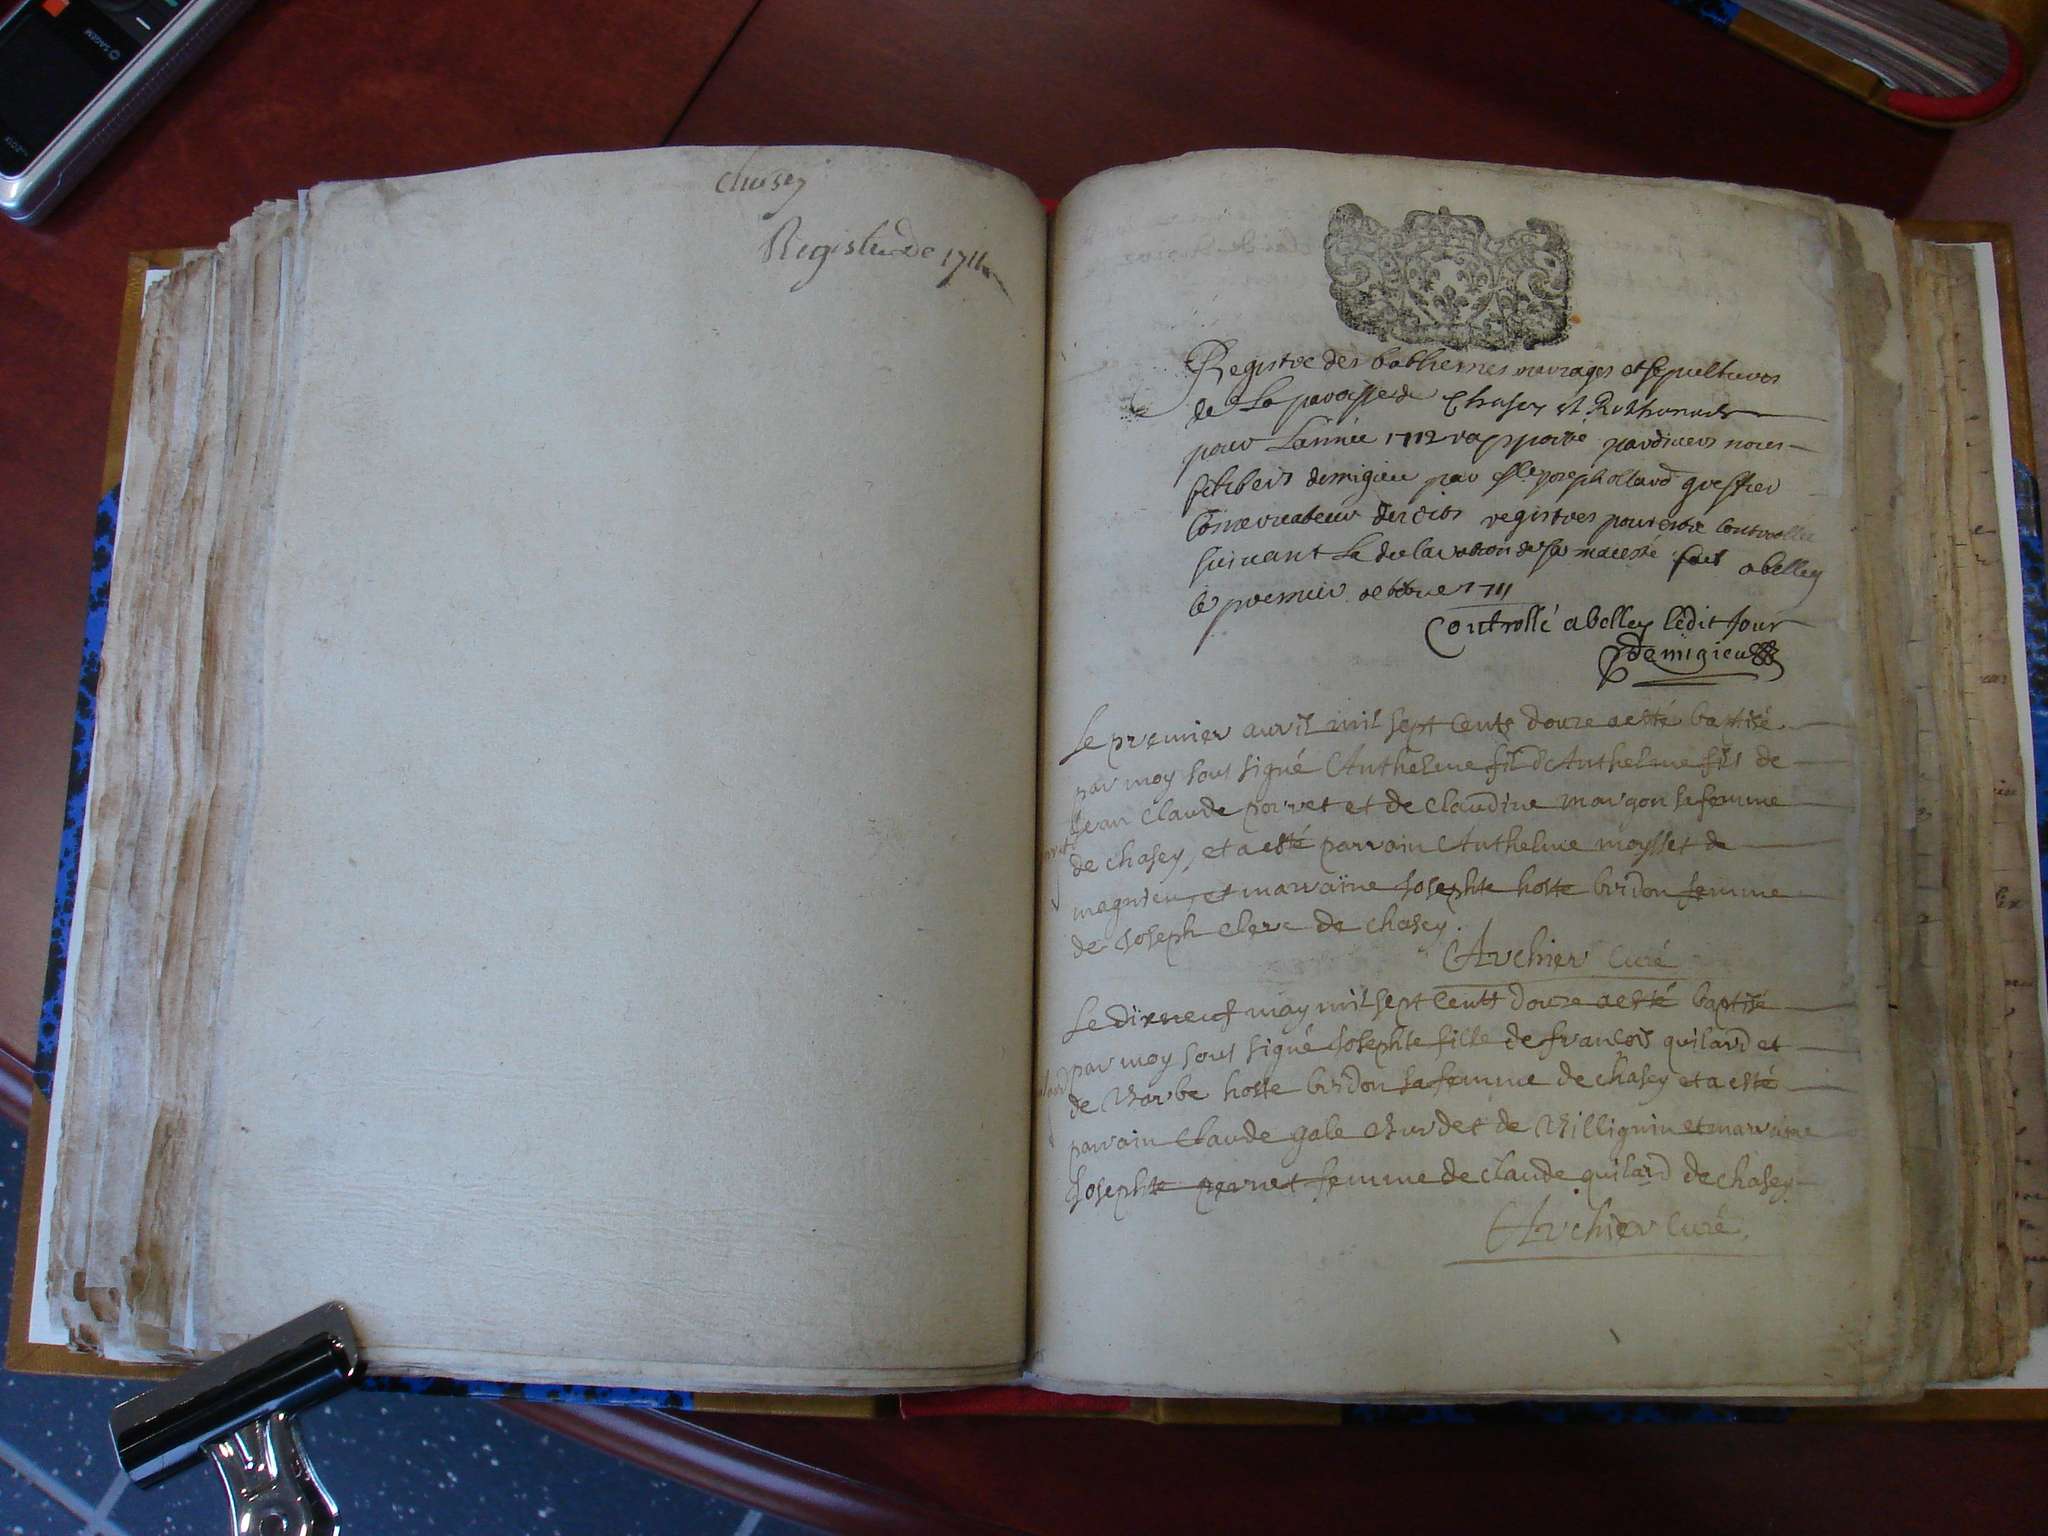 SAGEM
chasey
Registre de 1711
Registre des bathemes mariages et sepultures
de la paroisse de Chasey et
pour Lannée 1712 rapporté pardevers nous
demigieu par joseph ollard greffier
Conservateur desdits registres pour estre controollé
suivant la declaration de sa maiesté fait a belley
le premier octobre 1711
Controllé a belley ledit Jour
Demigieu
Le premier avril mil sept cents douze a esté baptisé
par moy sous signé Anthelme fil d'Anthelme fils de
Jean Claude porret et de Claudine margon sa femme
de chasey, et a esté parrain Anthelme moysset de
magnieu, et marraine Josephte hoste bridon femme
de Joseph Clerc de chasey.
Archier Curé
Le dixneuf may mil sept Cents douze a esté baptisé
par moy sous signé Josephte fille de francois quilard et
de Barbe hoste bridon sa femme de chasey et a esté
parrain Claude gale Burdet de Billignin et marraine
Josephte pernet femme de Claude quilard de chasey
Archier Curé.